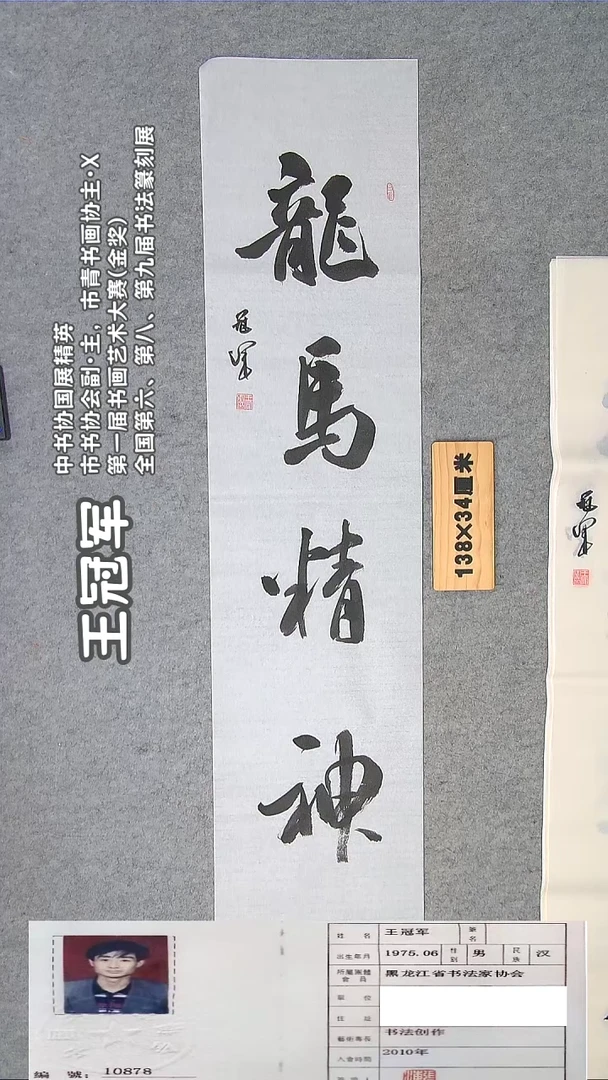 龍馬精神
冠军
中书协国展精英
市书协会副·主，市青书画协主·X
第一届书画艺术大赛(金奖)
全国第六、第八、第九届书法篆刻展
王冠军
138×34厘米
冠军
編 號: 10878
姓 名 王冠军 筆名
出生年月 1975.06 性别 男 民族 汉
所屬團體會員 黑龙江省书法家协会
職 位
住 址
藝術專長 书法创作
入會時間 2010年